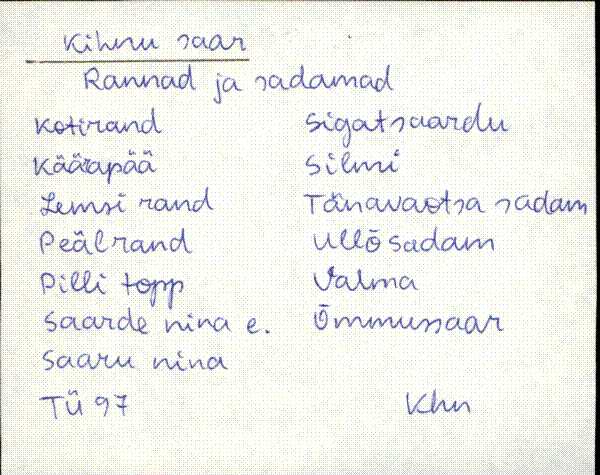 Kihnu saar
Rannad ja sadamad
Kotirand
Käärapää
Lemsi rand
Peälrand
Pilli topp
Saarde nina e.
Saaru nina
Sigatsaardu
Silmi
Tänavaotsa sadam
Ullõsadam
Valma
Õmmussaar
TÜ 97
Khn